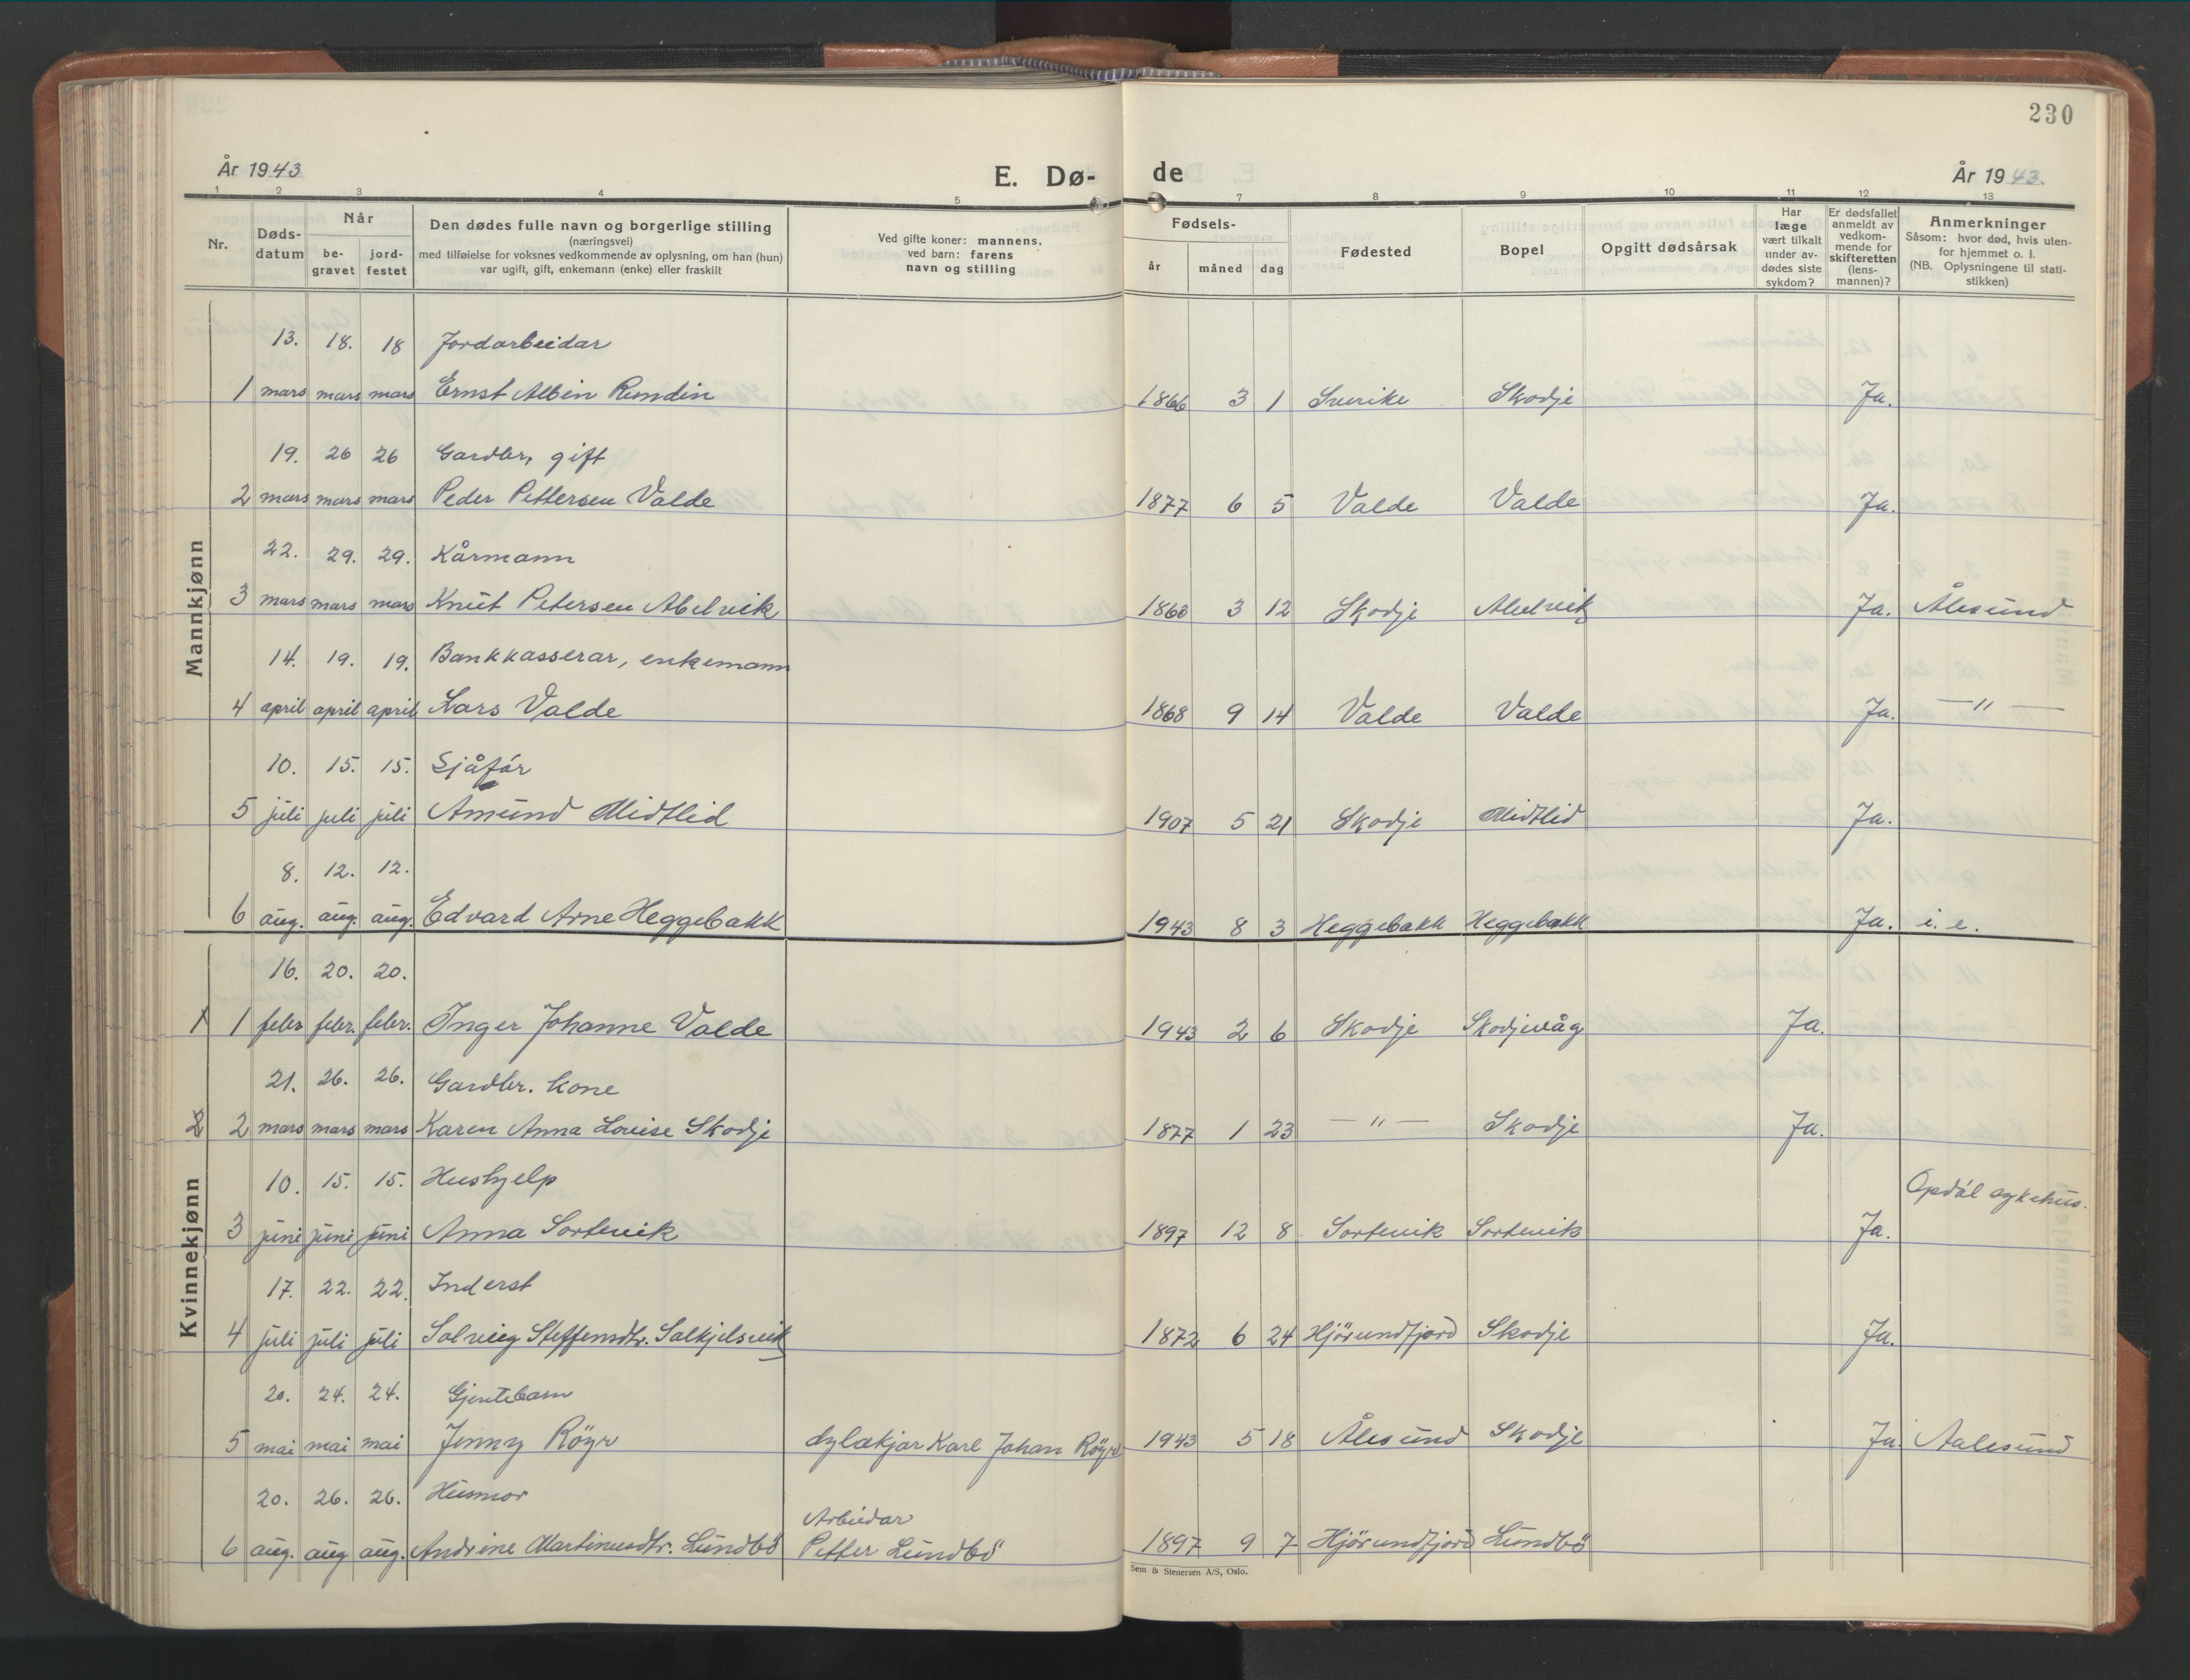 230
År 1943
E. Dø-
de
År 1943.
1 2 3 4 5 7 8 9 10 11 12 13
Nr.
Døds-
datum
Når
be-
gravet
jord-
festet
Den dødes fulle navn og borgerlige stilling
(næringsvei)
med tilføielse for voksnes vedkommende av oplysning, om han (hun)
var ugift, gift, enkemann (enke) eller fraskilt
Ved gifte koner: mannens.
ved barn: farens
navn og stilling
Fødsels-
år måned dag
Fødested
Bopel
Opgitt dødsårsak
Har
læge
vært tilkalt
under av-
dødes siste
sykdom?
Er dødsfallet
anmeldt av
vedkom-
mende for
skifteretten
(lens-
mannen)?
Anmerkninger
Såsom: hvor død, hvis uten-
for hjemmet o. l.
(NB. Oplysningene til stati-
stikken)
Mannkjønn
13. 18. 18 Jordarbeidar
1 mars mars mars Ernst Albin Rundin 1866 3 1 Sverike Skodje Ja.
19. 26 26 Gardbr, gift
2 mars mars mars Peder Pettersen Valde 1877 6 5 Valde Valde Ja.
22. 29. 29. Kårmann
3 mars mars mars Knut Petersen Abelvik 1863 3 12 Skodje Abelvik Ja. Ålesund
14. 19. 19. Bankkasserar, enkemann
4 april april april Lars Valde 1868 9 14 Valde Valde Ja. — " —
10. 15. 15. Sjåfør
5 juli juli juli Amund Midtlid 1907 5 21 Skodje Midtlid Ja.
8. 12. 12.
6 aug. aug. aug. Edvard Arne Heggebakk 1943 8 3 Heggebakk Heggebakk Ja. i. e.
Kvinnekjønn
16. 20. 20.
1 1 febr. febr. febr. Inger Johanne Valde 1943 2 6 Skodje Skodjevåg Ja.
21. 26. 26. Gardbr. kone
2 2 mars mars mars Karen Anna Louise Skodje 1877 1 23 — " — Skodje Ja.
10. 15. 15. Hushjelp Opdøl sykehus.
3 juni juni juni Anna Sortevik 1897 12 8 Sortevik Sortevik Ja.
17. 22. 22. Inderst
4 juli juli juli Solveig Steffensdtr. Solkjelsvik 1872 6 24 Hjörundfjord Skodje Ja.
20. 24. 24. Gjentebarn
5 mai mai mai Jenny Röyr Karl Johan Röyr 1943 5 18 Ålesund Skodje Ja. Aalesund
20. 26. 26. Husmor Arbeidar
6 aug. aug aug. Andrine Martinusdtr. Lundbö Petter Lundbö 1897 9 7 Hjörundfjord Lundbö
Sem & Stenersen A/S, Oslo.